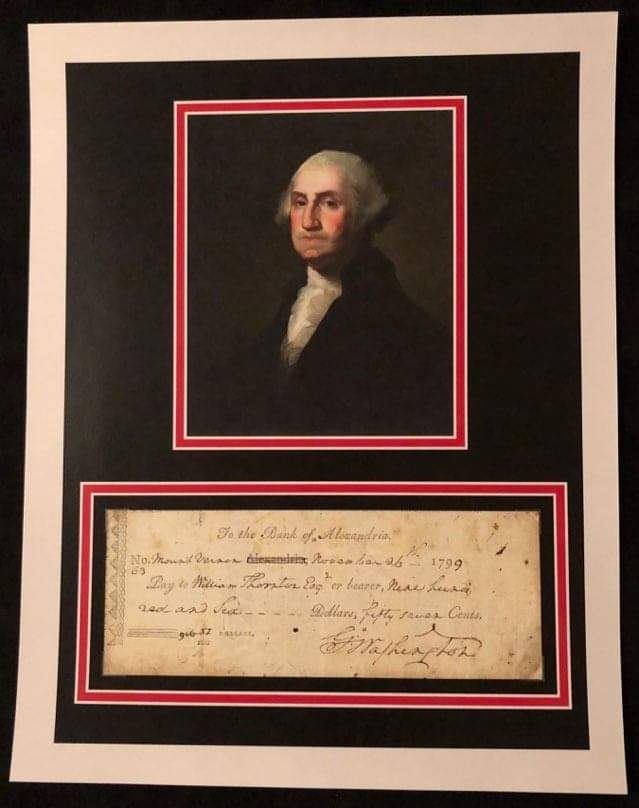 To the Bank of Alexandria.
No. Mount Vernon Alexandria, November 26th 1799
63
Pay to William Thornton Esqr or bearer, Nine hund
red and Six Dollars, fifty seven Cents.
906 57 DOLLARS.
100
G:Washington